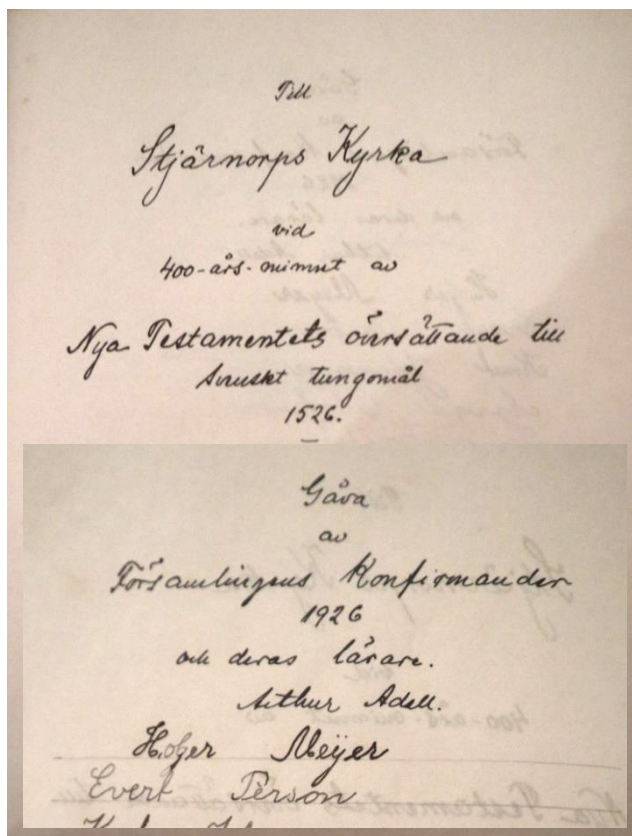 Till
Stjärnorps Kyrka
vid
400-års-minnet av
Nya Testamentets översättande till
svenskt tungomål
1526.
Gåva
av
Församlingens Konfirmander
1926
och deras lärare.
Arthur Adell.
Holger Meijer
Evert Person